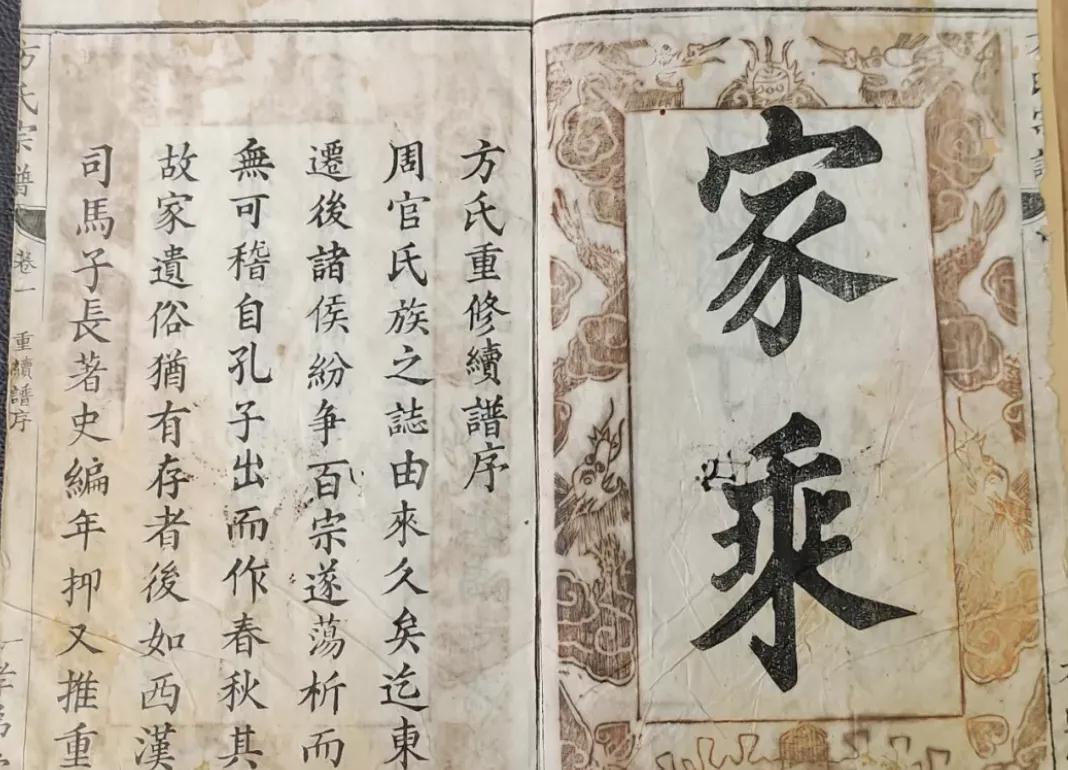 家乘
方氏重修續譜序
周官氏族之誌由來久矣迄東
遷後諸侯紛争百宗遂蕩析而
無可稽自孔子出而作春秋其
故家遺俗猶有存者後如西漢
司馬子長著史編年抑又推重
方氏宗譜
卷一
重續譜序
一